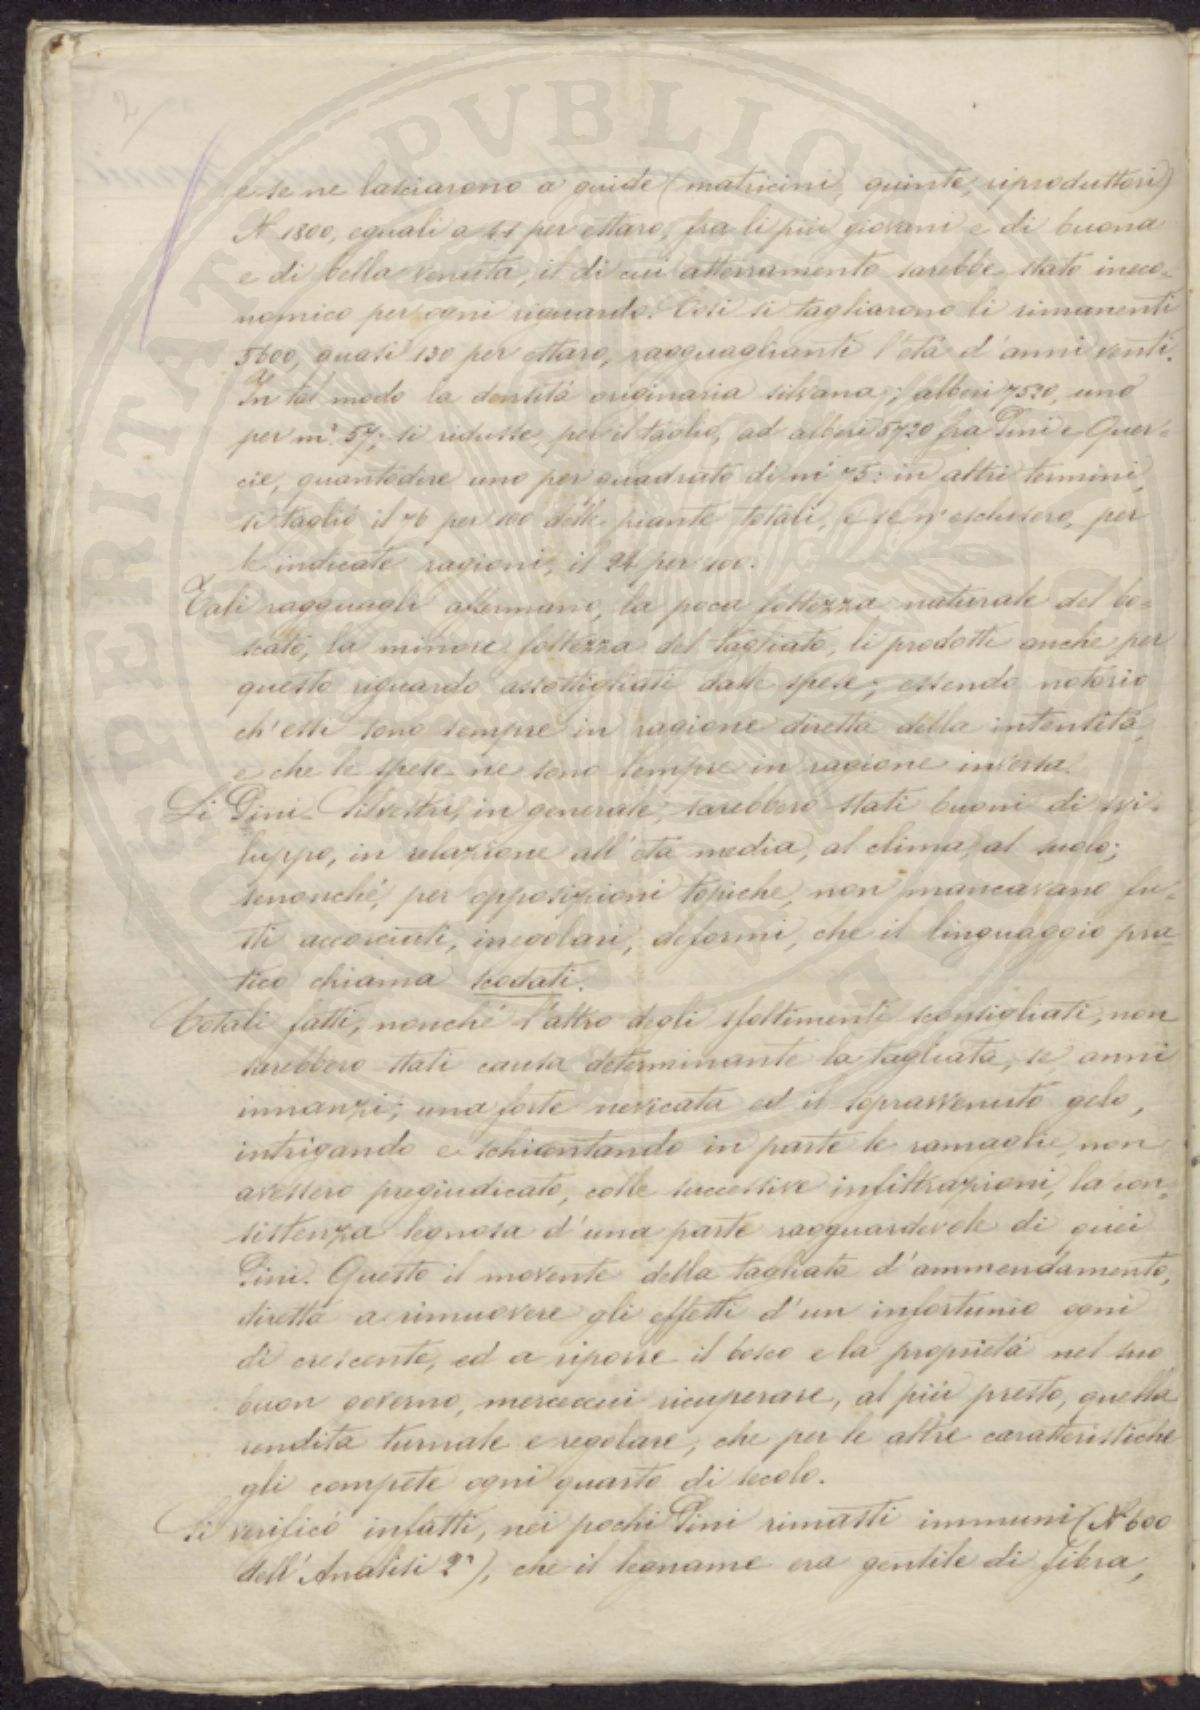 2
e se ne lasciarono a guide (matricini, guinte, riproduttori)
N 1800, eguali a 41 per ettaro, fra li più giovani e di buona
e di bella venuta, il di cui atterramento sarebbe stato ineco-
nomico per ogni riguardo. Così si tagliarono li rimanenti
5600, quasi 130 per ettaro, ragguaglianti l'età d'anni venti.
In tal modo la densità originaria silvana; alberi 7520, uno
per m² 57; si ridusse, per il taglio, ad alberi 5720 fra Pini e Quer-
cie, quantodire uno per quadrato di m² 75: in altri termini,
si tagliò il 76 per 100 delle piante totali, e se n'esclusero, per
le indicate ragioni, il 24 per 100.
Tali ragguagli affermano, la poca foltezza naturale del bo-
scato, la minore foltezza del tagliato, li prodotti anche per
questo riguardo assottigliati dalle spese; essendo notorio
ch'essi sono sempre in ragione diretta della intensità,
e che le spese ne sono sempre in ragione inversa.
Li Pini Silvestri, in generale, sarebbero stati buoni di svi-
luppo, in relazione all'età media, al clima, al suolo;
senonché, per opposizioni topiche, non mancavano fu-
sti accorciati, irregolari, deformi, che il linguaggio pra-
tico chiama scodati.
Cotali fatti, nonché l'altro degli sfoltimenti sconsigliati, non
sarebbero stati causa determinante la tagliata, se anni
innanzi; una forte nevicata ed il sopravvenuto gelo,
intrigando e schiantando in parte le ramaglie, non
avessero pregiudicato, colle successive infiltrazioni, la con-
sistenza legnosa d'una parte ragguardevole di quei
Pini. Questo il movente della tagliata d'ammendamento,
diretta a rimuovere gli effetti d'un infortunio ogni
dì crescente, ed a riporre il bosco e la proprietà nel suo
buon governo, mercecui ricuperare, al più presto, quella
rendita turnale e regolare, che per le altre caratteristiche
gli compete ogni quarto di secolo.
Si verificò infatti, nei pochi Pini rimasti immuni (N 600
dell'Analisi 2ª), che il legname era gentile di fibra,